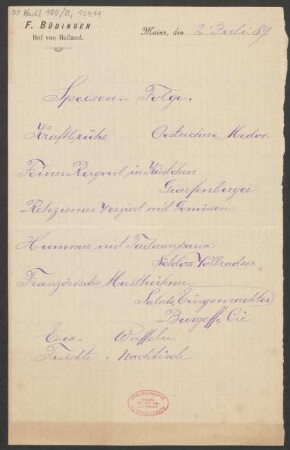 33 Nachl 109/B, 12411
F. BÜDINGEN
Hof von Holland.
Mainz, den 2 Juli 89
Speisen-Folge
Kraftbrühe Oestricher Medoc
Feines Ragout in Kästchen
Graefenberger
Rehziemer verziert mit Gemüsen
Hummer mit
Schloss Vollradser
Französische Masthühner
Salate Eingemachtes
Burgeff & Cie
Eis - Waffeln
Früchte - Nachtisch